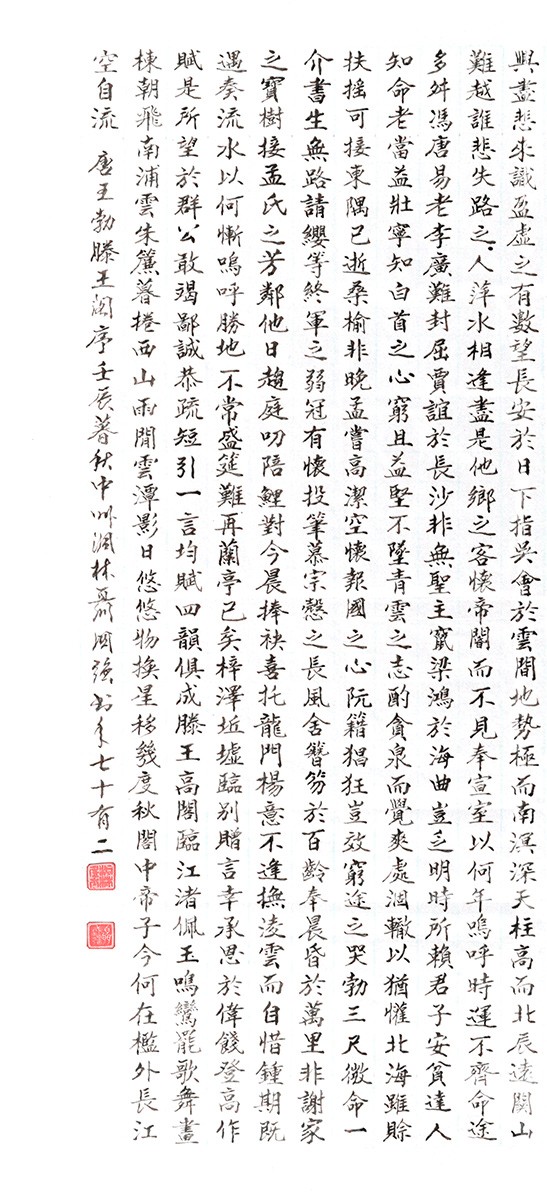 興盡悲來識盈虛之有數望長安於日下指吳會於雲間地勢極而南溟深天柱高而北辰遠關山
難越誰悲失路之人萍水相逢盡是他鄉之客懷帝閽而不見奉宣室以何年嗚呼時運不齊命途
多舛馮唐易老李廣難封屈賈誼於長沙非無聖主竄梁鴻於海曲豈乏明時所賴君子安貧達人
知命老當益壯寧知白首之心窮且益堅不墜青雲之志酌貪泉而覺爽處涸轍以猶懽北海雖賒
扶搖可接東隅已逝桑榆非晚孟嘗高潔空懷報國之心阮籍猖狂豈效窮途之哭勃三尺微命一
介書生無路請纓等終軍之弱冠有懷投筆慕宗慤之長風舍簪笏於百齡奉晨昏於萬里非謝家
之寶樹接孟氏之芳鄰他日趨庭叨陪鯉對今晨捧袂喜托龍門楊意不逢撫淩雲而自惜鍾期既
遇奏流水以何慚嗚呼勝地不常盛筵難再蘭亭已矣梓澤坵墟臨別贈言幸承恩於偉餞登高作
賦是所望於群公敢竭鄙誠恭疏短引一言均賦四韻俱成滕王高閣臨江渚佩玉鳴鸞罷歌舞畫
棟朝飛南浦雲朱簾暮捲西山雨閒雲潭影日悠悠物換星移幾度秋閣中帝子今何在檻外長江
空自流 唐王勃滕王閣序壬辰暮秋中州林聶國強書年七十有二